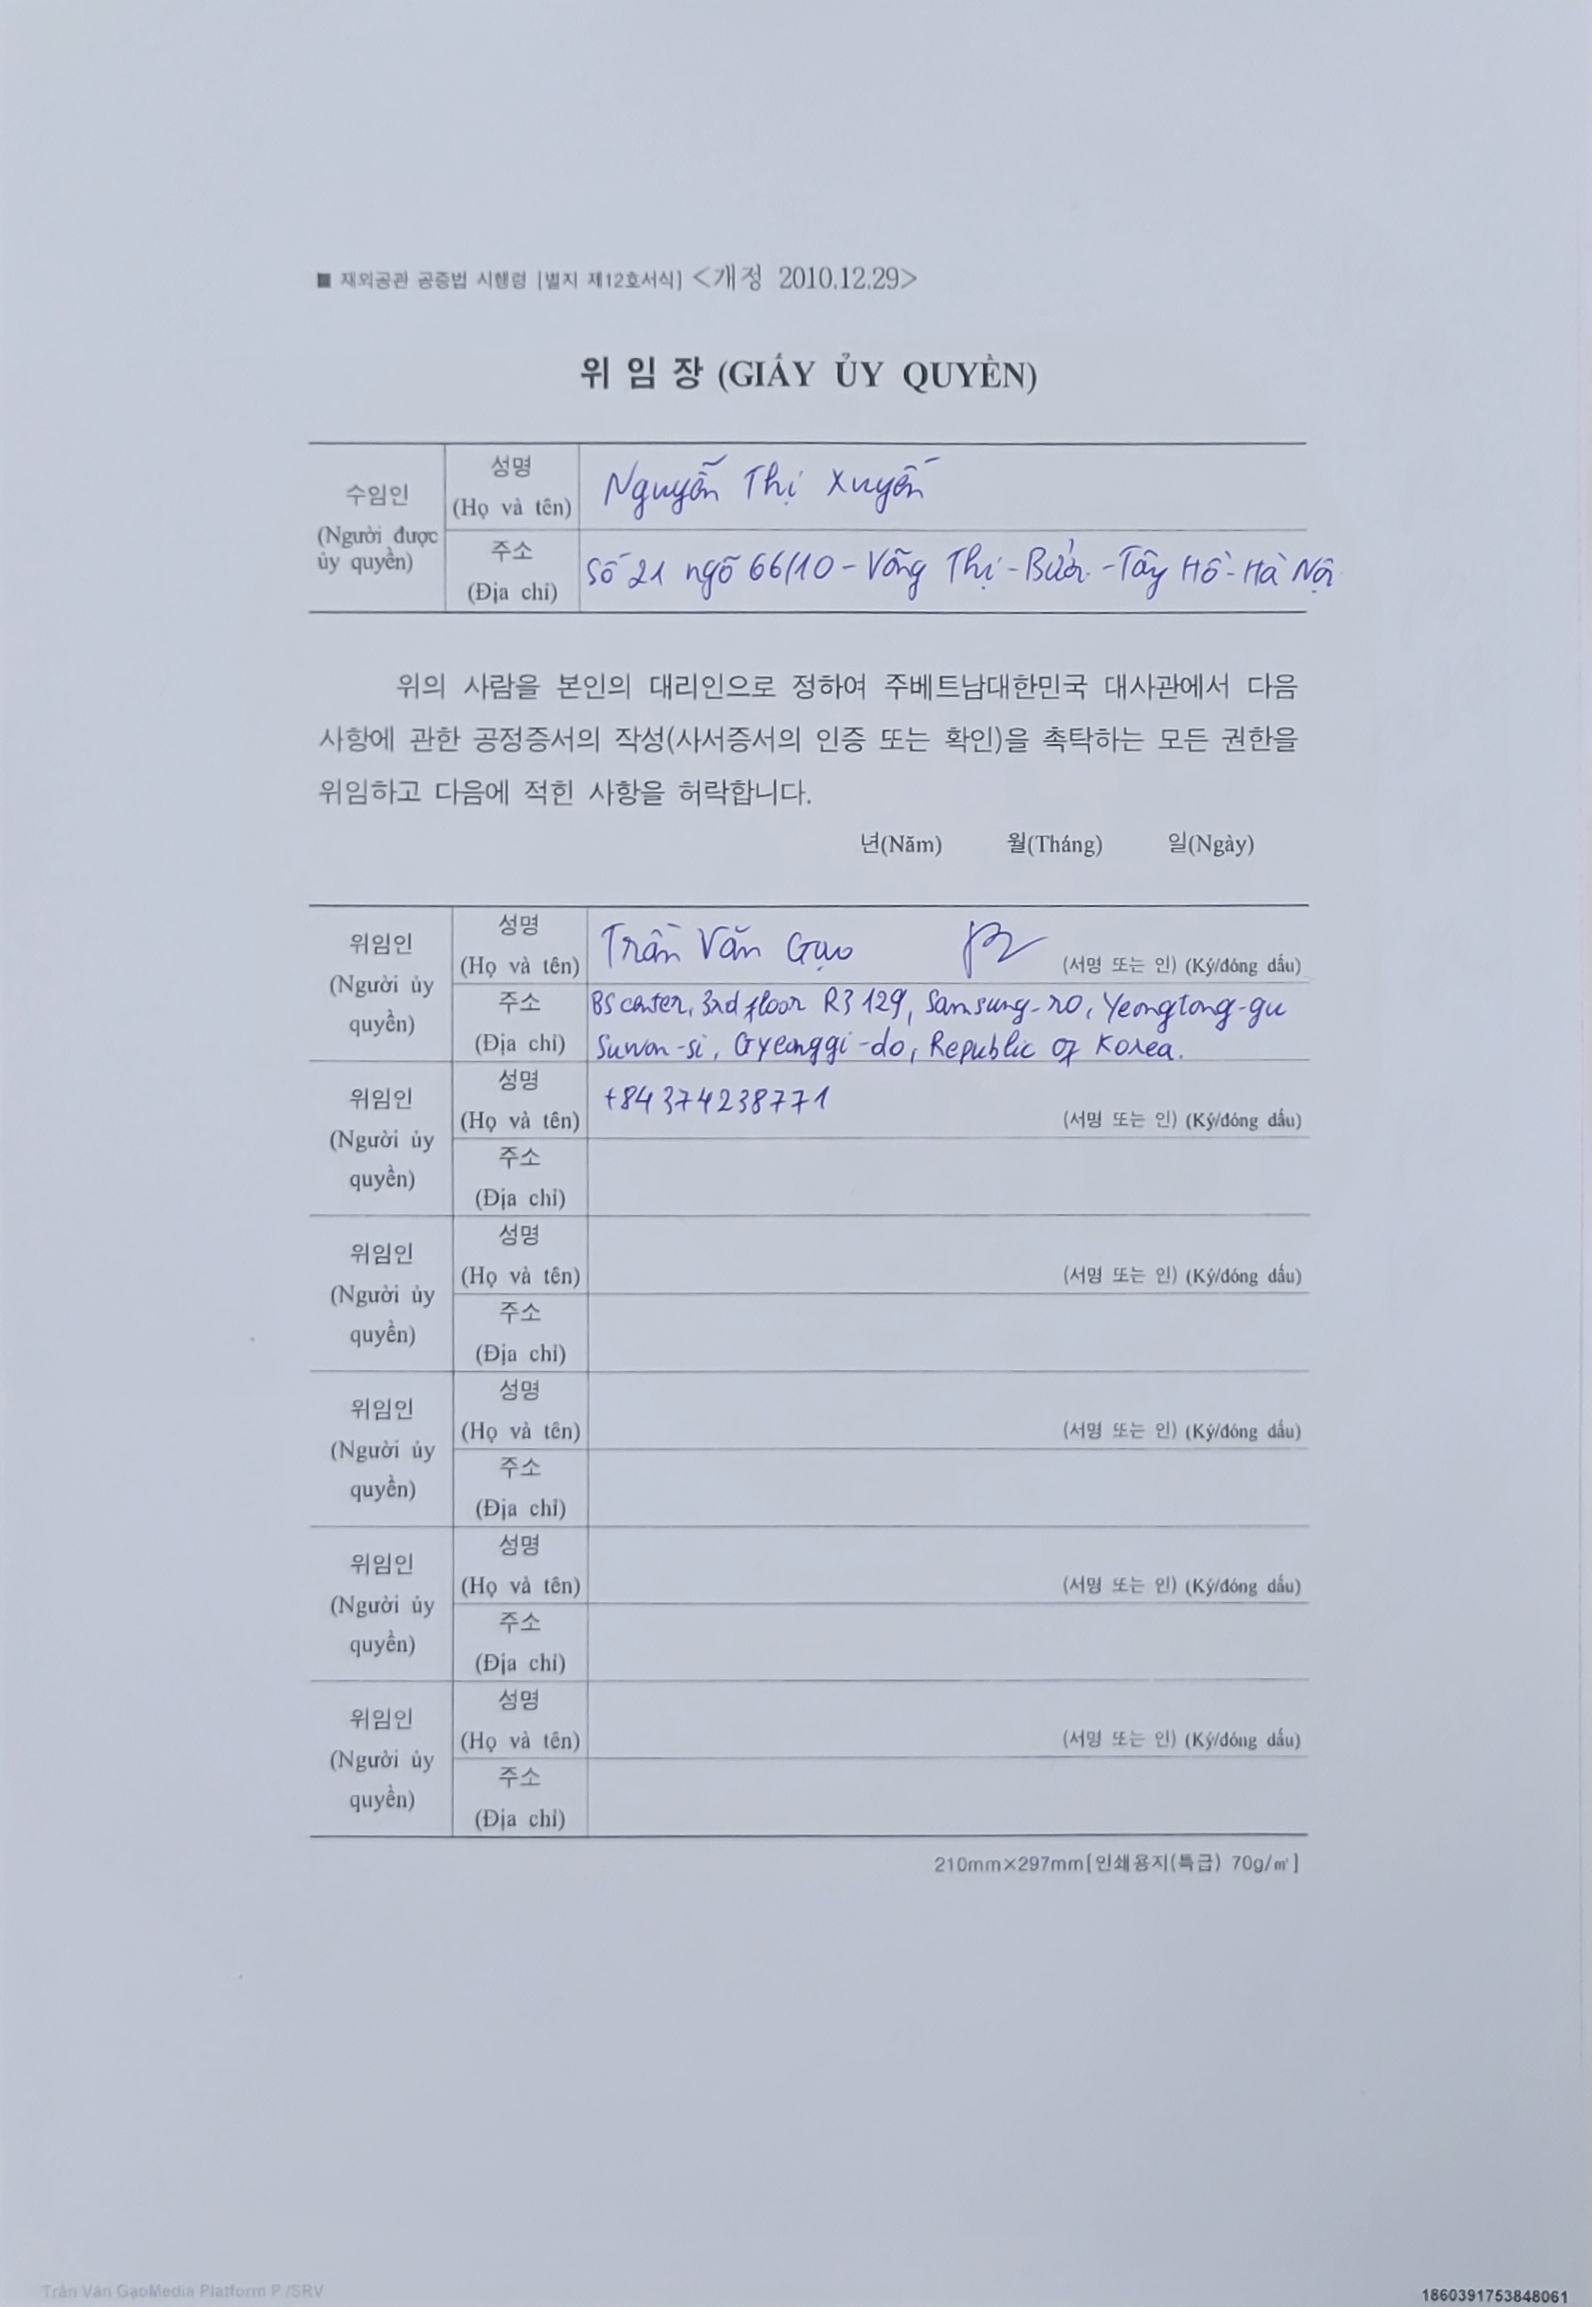 ■ 재외공관 공증법 시행령 [별지 제12호서식] <개정 2010.12.29>
위 임 장 (GIẤY ỦY QUYỀN)
수임인
(Người được
ủy quyền)
성명
(Họ và tên)
Nguyễn Thị Xuyến
주소
(Địa chỉ)
Số 21 ngõ 66/10 - Võng Thị - Bưởi - Tây Hồ - Hà Nội
위의 사람을 본인의 대리인으로 정하여 주베트남대한민국 대사관에서 다음
사항에 관한 공정증서의 작성(사서증서의 인증 또는 확인)을 촉탁하는 모든 권한을
위임하고 다음에 적힌 사항을 허락합니다.
년(Năm) 월(Tháng) 일(Ngày)
위임인
(Người ủy
quyền)
성명
(Họ và tên)
Trần Văn Gạo (서명 또는 인) (Ký/đóng dấu)
주소
(Địa chỉ)
BS center, 3rd floor R3 129, Samsung-ro, Yeongtong-gu
Suwon-si, Gyeonggi-do, Republic of Korea.
위임인
(Người ủy
quyền)
성명
(Họ và tên)
+84 374238771
(서명 또는 인) (Ký/đóng dấu)
주소
(Địa chỉ)
위임인
(Người ủy
quyền)
성명
(Họ và tên)
(서명 또는 인) (Ký/đóng dấu)
주소
(Địa chỉ)
위임인
(Người ủy
quyền)
성명
(Họ và tên)
(서명 또는 인) (Ký/đóng dấu)
주소
(Địa chỉ)
위임인
(Người ủy
quyền)
성명
(Họ và tên)
(서명 또는 인) (Ký/đóng dấu)
주소
(Địa chỉ)
위임인
(Người ủy
quyền)
성명
(Họ và tên)
(서명 또는 인) (Ký/đóng dấu)
주소
(Địa chỉ)
210mm×297mm[인쇄용지(특급) 70g/㎡]
Trần Văn GạoMedia Platform P /SRV
1860391753848061